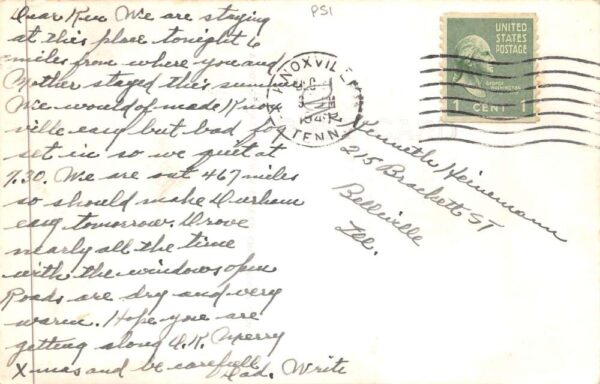 Dear Ken We are staying
at this place tonight 6
miles from where you and
Mother stayed this summer
We would of made Knox
ville easy but bad fog
set in so we quit at
7.30. We are out 467 miles
so should make Durham
easy tomorrow. Drove
nearly all the time
with the windows open
Roads are dry and very
warm. Hope you are
getting along O.K. Merry
Xmas and be carefull
Dad. Write
PS1
KNOXVILLE
TENN.
UNITED
STATES
POSTAGE
GEORGE
WASHINGTON
1 CENT 1
Kenneth Heinemann
215 Brackett ST
Belleville
Ill.